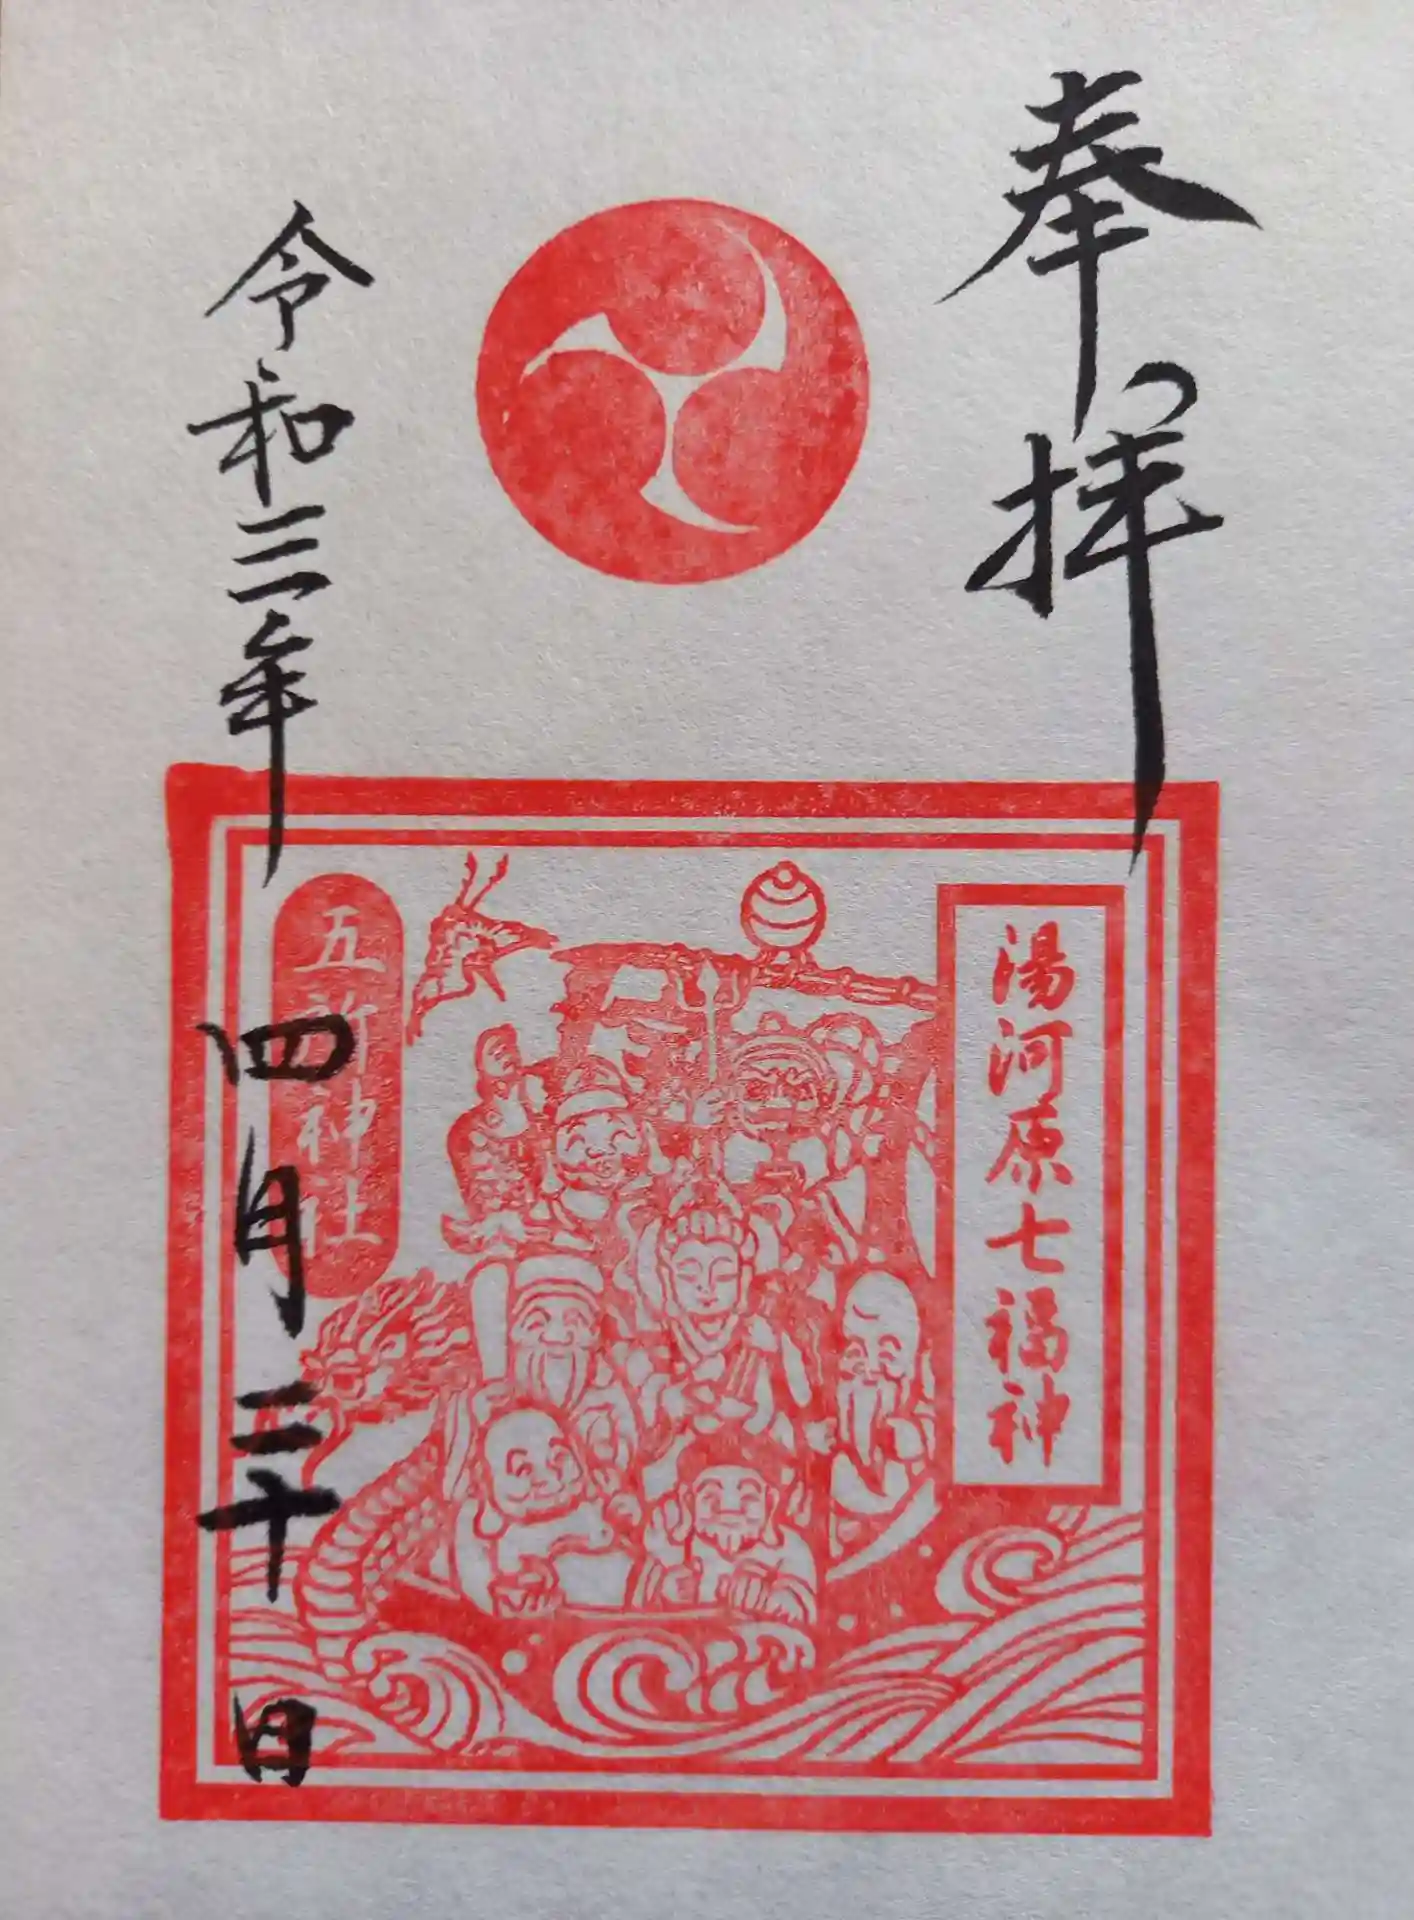 奉拝
湯河原七福神
五所神社
令和三年四月二十日